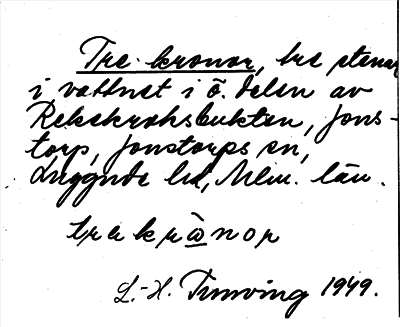 Tre kronor, tre stenar
i vattnet i ö. delen av
Rekekroksbukten, Jons-
torp, Jonstorps sn,
Luggude hd, Mlm. län.
trekrånor
L.-H. Tunving 1949.